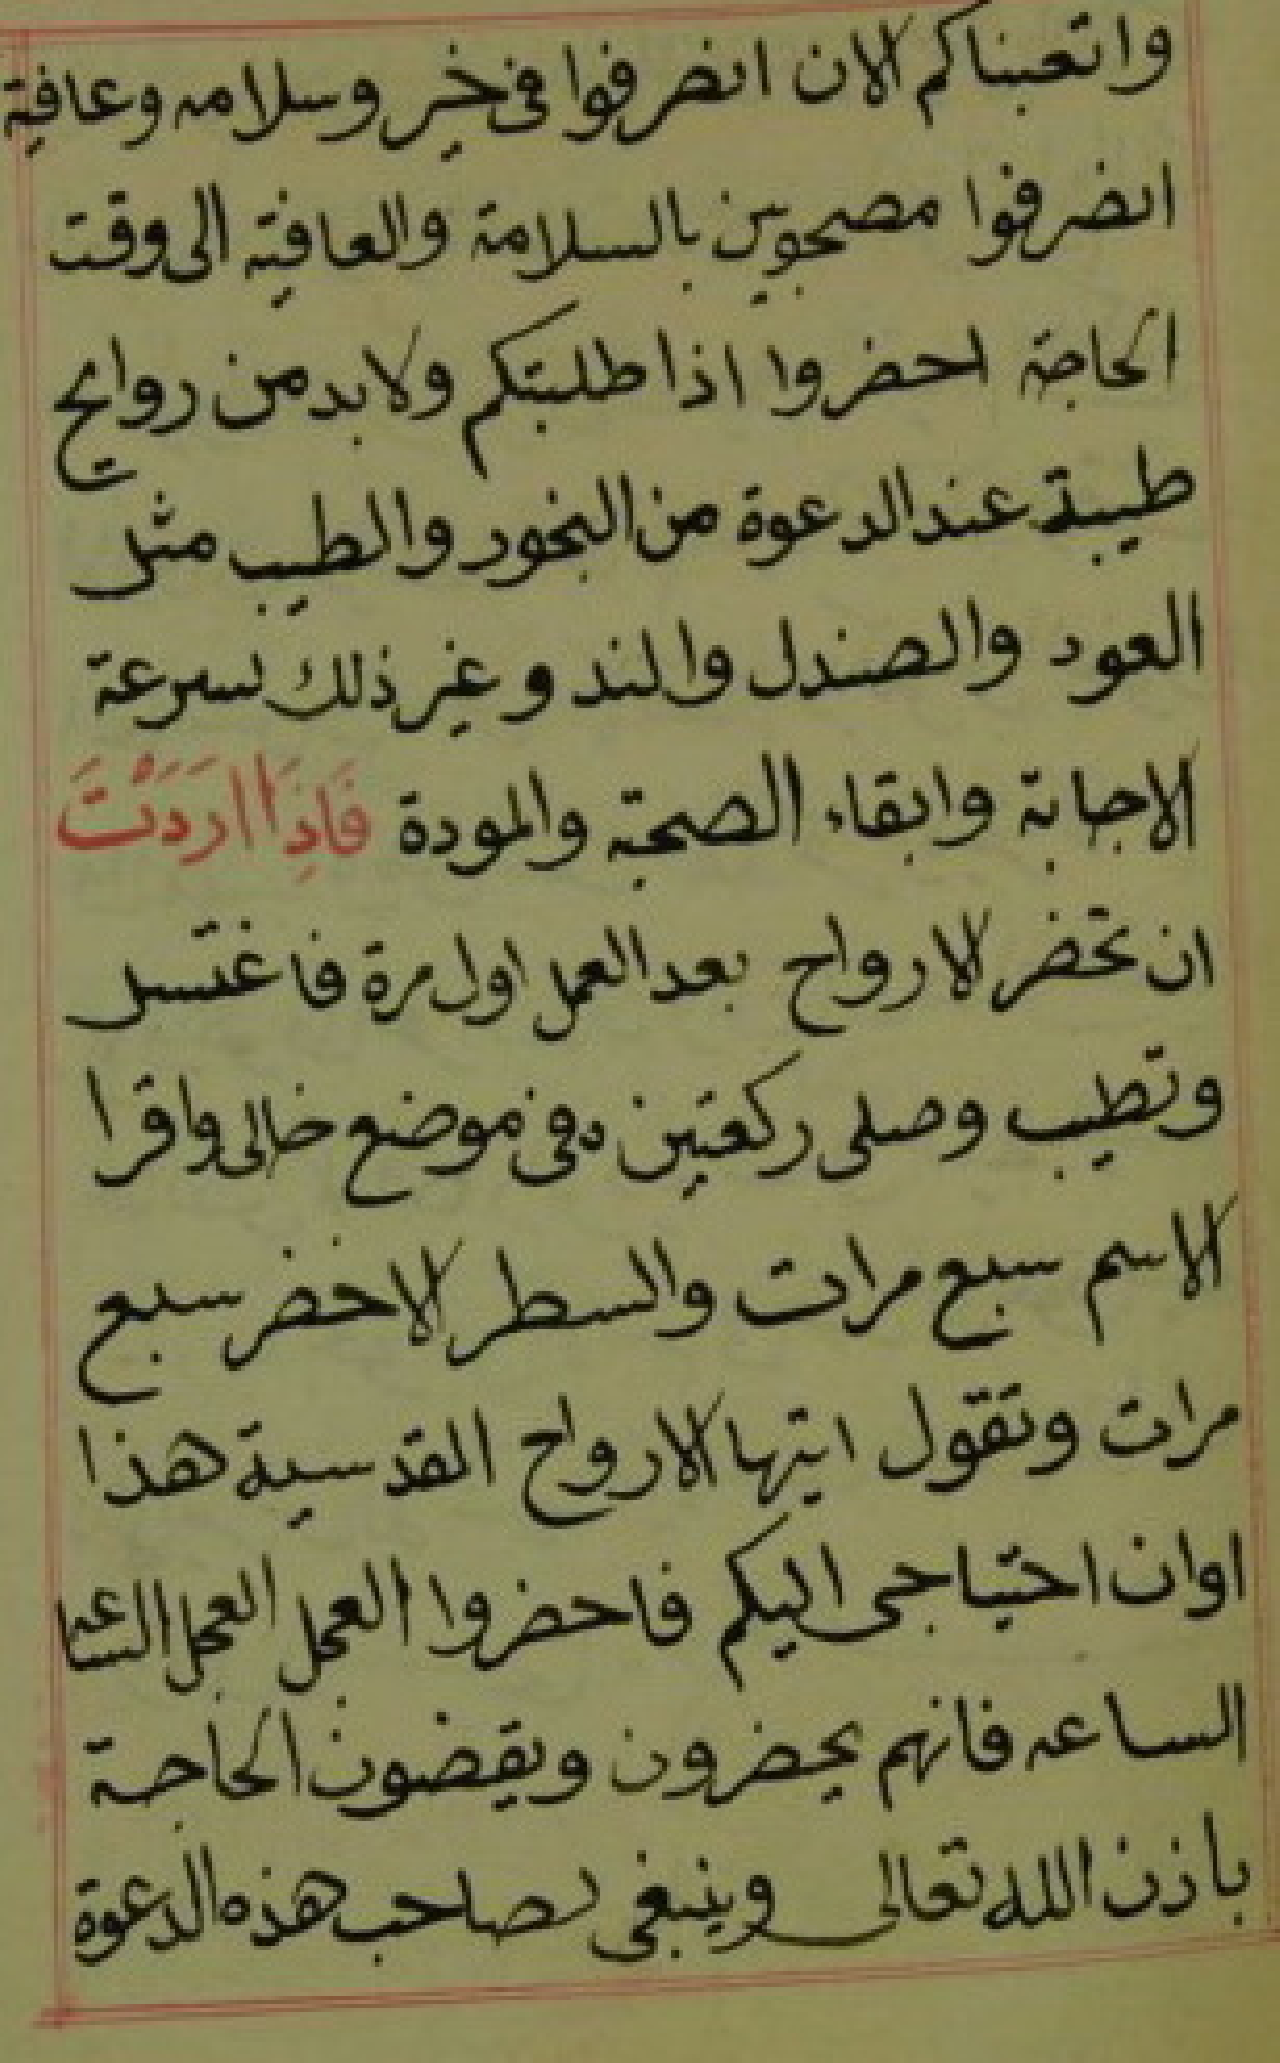 واتعبناكم الان انصرفوا فى خير وسلامه وعافية
انصرفوا مصحوبين بالسلامة والعافيه الى وقت
الحاجة احضروا اذا طلبتكم ولابد من روايح
طيبة عند الدعوة من البخور والطيب مثل
العود والصندل والند وغير ذلك لسرعة
الاجابة وابقاء الصحبة والمودة فَاِذَا ارَدَتْتَ
ان تحضر الارواح بعد العمل اول مرة فاغتسل
وتطيب وصلى ركعتين فى موضع خالى واقرا
الاسم سبع مرات والسطر الاخضر سبع
مرات وتقول ايتها الارواح القدسية هذا
اوان احتياجى اليكم فاحضروا العجل العجل الساعه
الساعه فانهم يحضرون ويقضون الحاجة
باذن الله تعالى وينبغى لصاحب هذه الدعوة